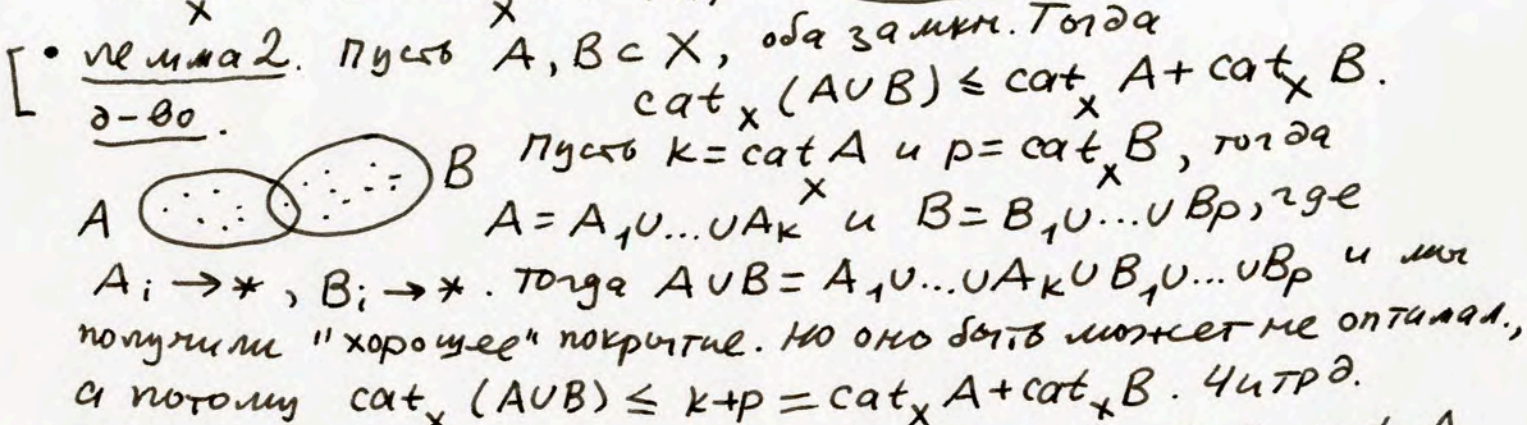 • лемма 2. Пусть A, B ⊂ X, оба замкн. Тогда
cat_X (A∪B) ≤ cat_X A + cat_X B.
д-во.
Пусть k = cat_X A и p = cat_X B, тогда
A B
A = A_1∪...∪A_k и B = B_1∪...∪B_p, где
A_i → *, B_i → *. Тогда A∪B = A_1∪...∪A_k∪B_1∪...∪B_p и мы
получили "хорошее" покрытие. Но оно быть может не оптимал.,
а потому cat_X (A∪B) ≤ k+p = cat_X A + cat_X B. Читрд.